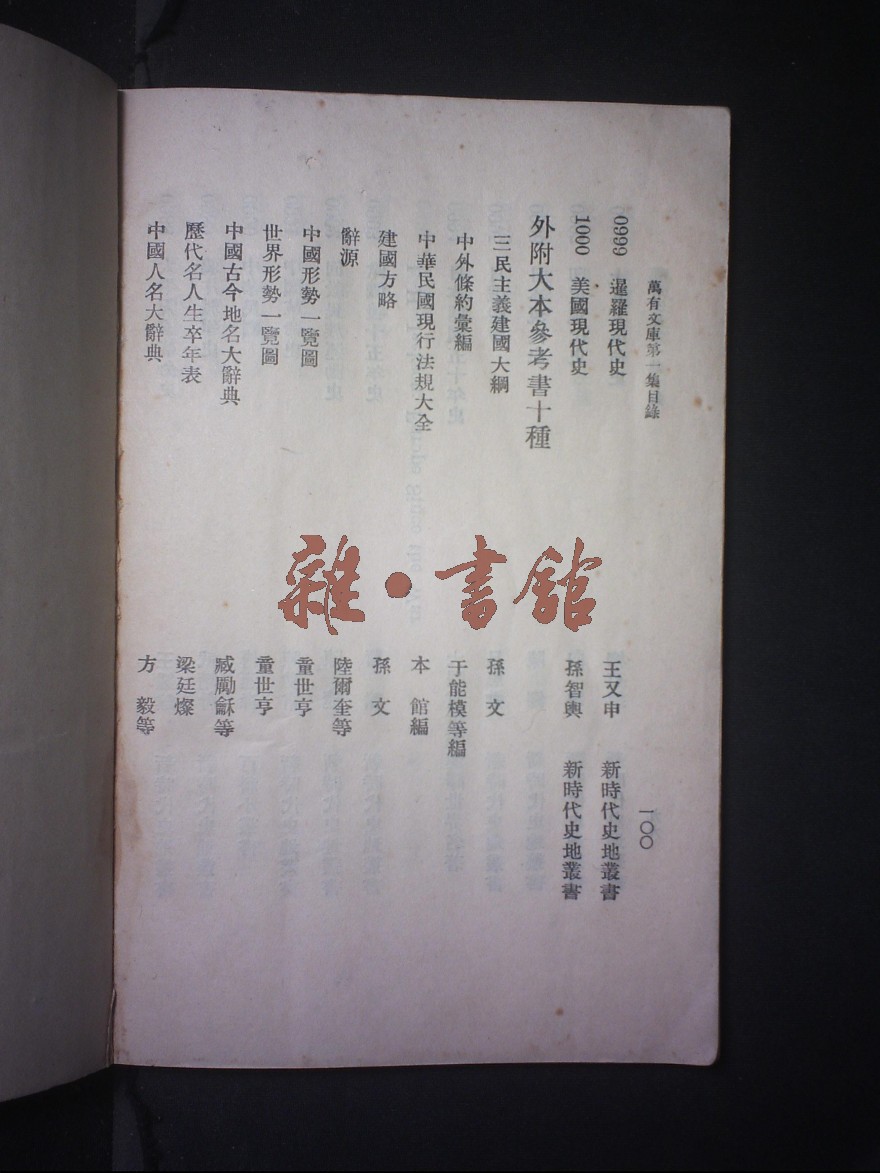 萬有文庫第一集目錄 一〇〇
0999 暹羅現代史 王又申 新時代史地叢書
1000 美國現代史 孫智輿 新時代史地叢書
外附大本參考書十種
三民主義建國大綱 孫文
中外條約彙編 于能模等編
中華民國現行法規大全 本館編
建國方略 孫文
辭源 陸爾奎等
中國形勢一覽圖 童世亨
世界形勢一覽圖 童世亨
中國古今地名大辭典 臧勵龢等
歷代名人生卒年表 梁廷燦
中國人名大辭典 方毅等
雜·書館